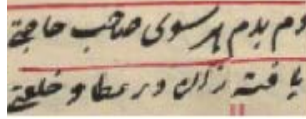 دم بدم هر سوی صاحب حاجتی
یافته زان در عطا و خلعتی